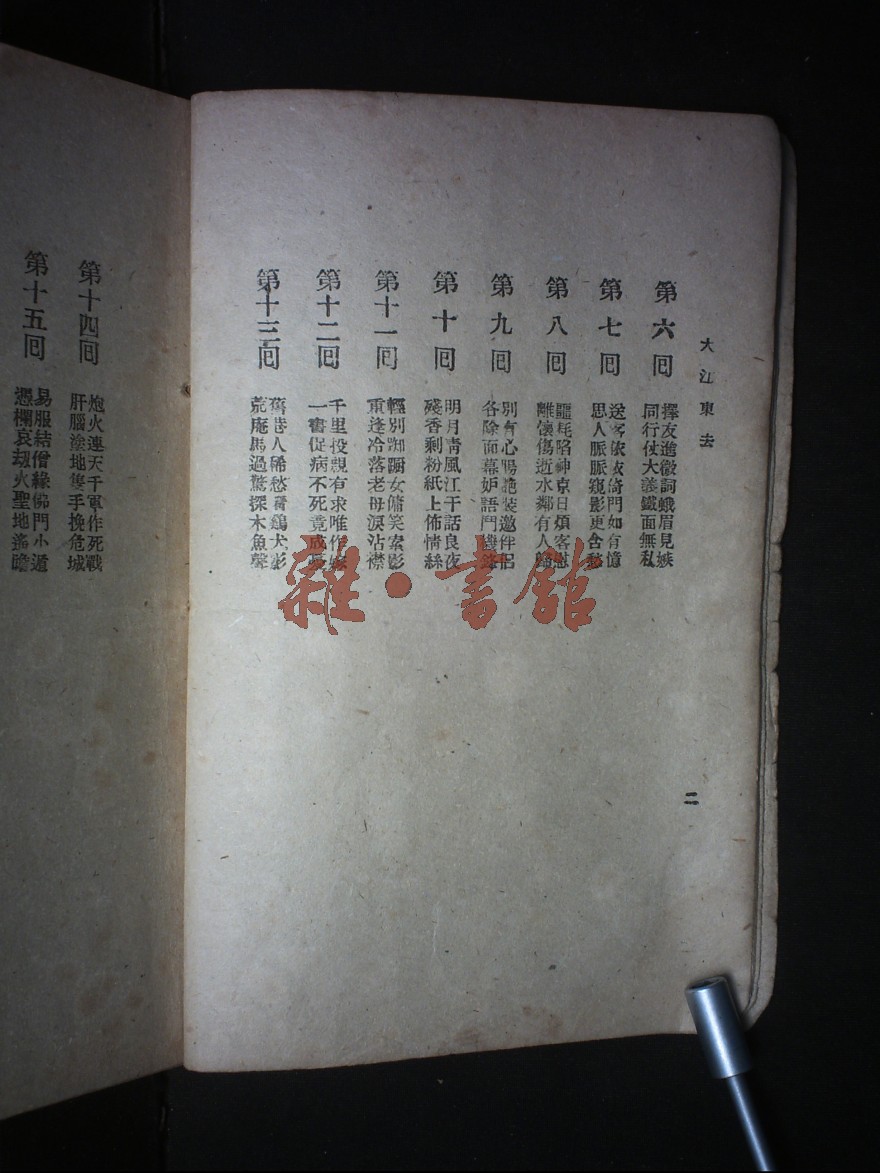 大江東去
第六回
擇友進微詞蛾眉見嫉
同行仗大義鐵面無私
第七回
送客依依倚門如有憶
思人脈脈窺影更含愁
第八回
噩耗陷神京日煩客慰
離懷傷逝水鄰有人歸
第九回
別有心腸艶裝邀伴侶
各除面幕妒語鬥機鋒
第十回
明月青風江干話良夜
殘香剩粉紙上佈情絲
第十一回
輕別踟躕女傭笑索影
重逢冷落老母淚沾襟
第十二回
千里投親有求唯作嫁
一書促病不死竟成憂
第十三回
舊巷人稀愁看鷄犬影
荒庵馬過驚探木魚聲
二
第十四回
炮火連天千軍作死戰
肝腦塗地隻手挽危城
第十五回
易服結僧緣佛門小遁
憑欄哀劫火聖地遙瞻
雜·書館